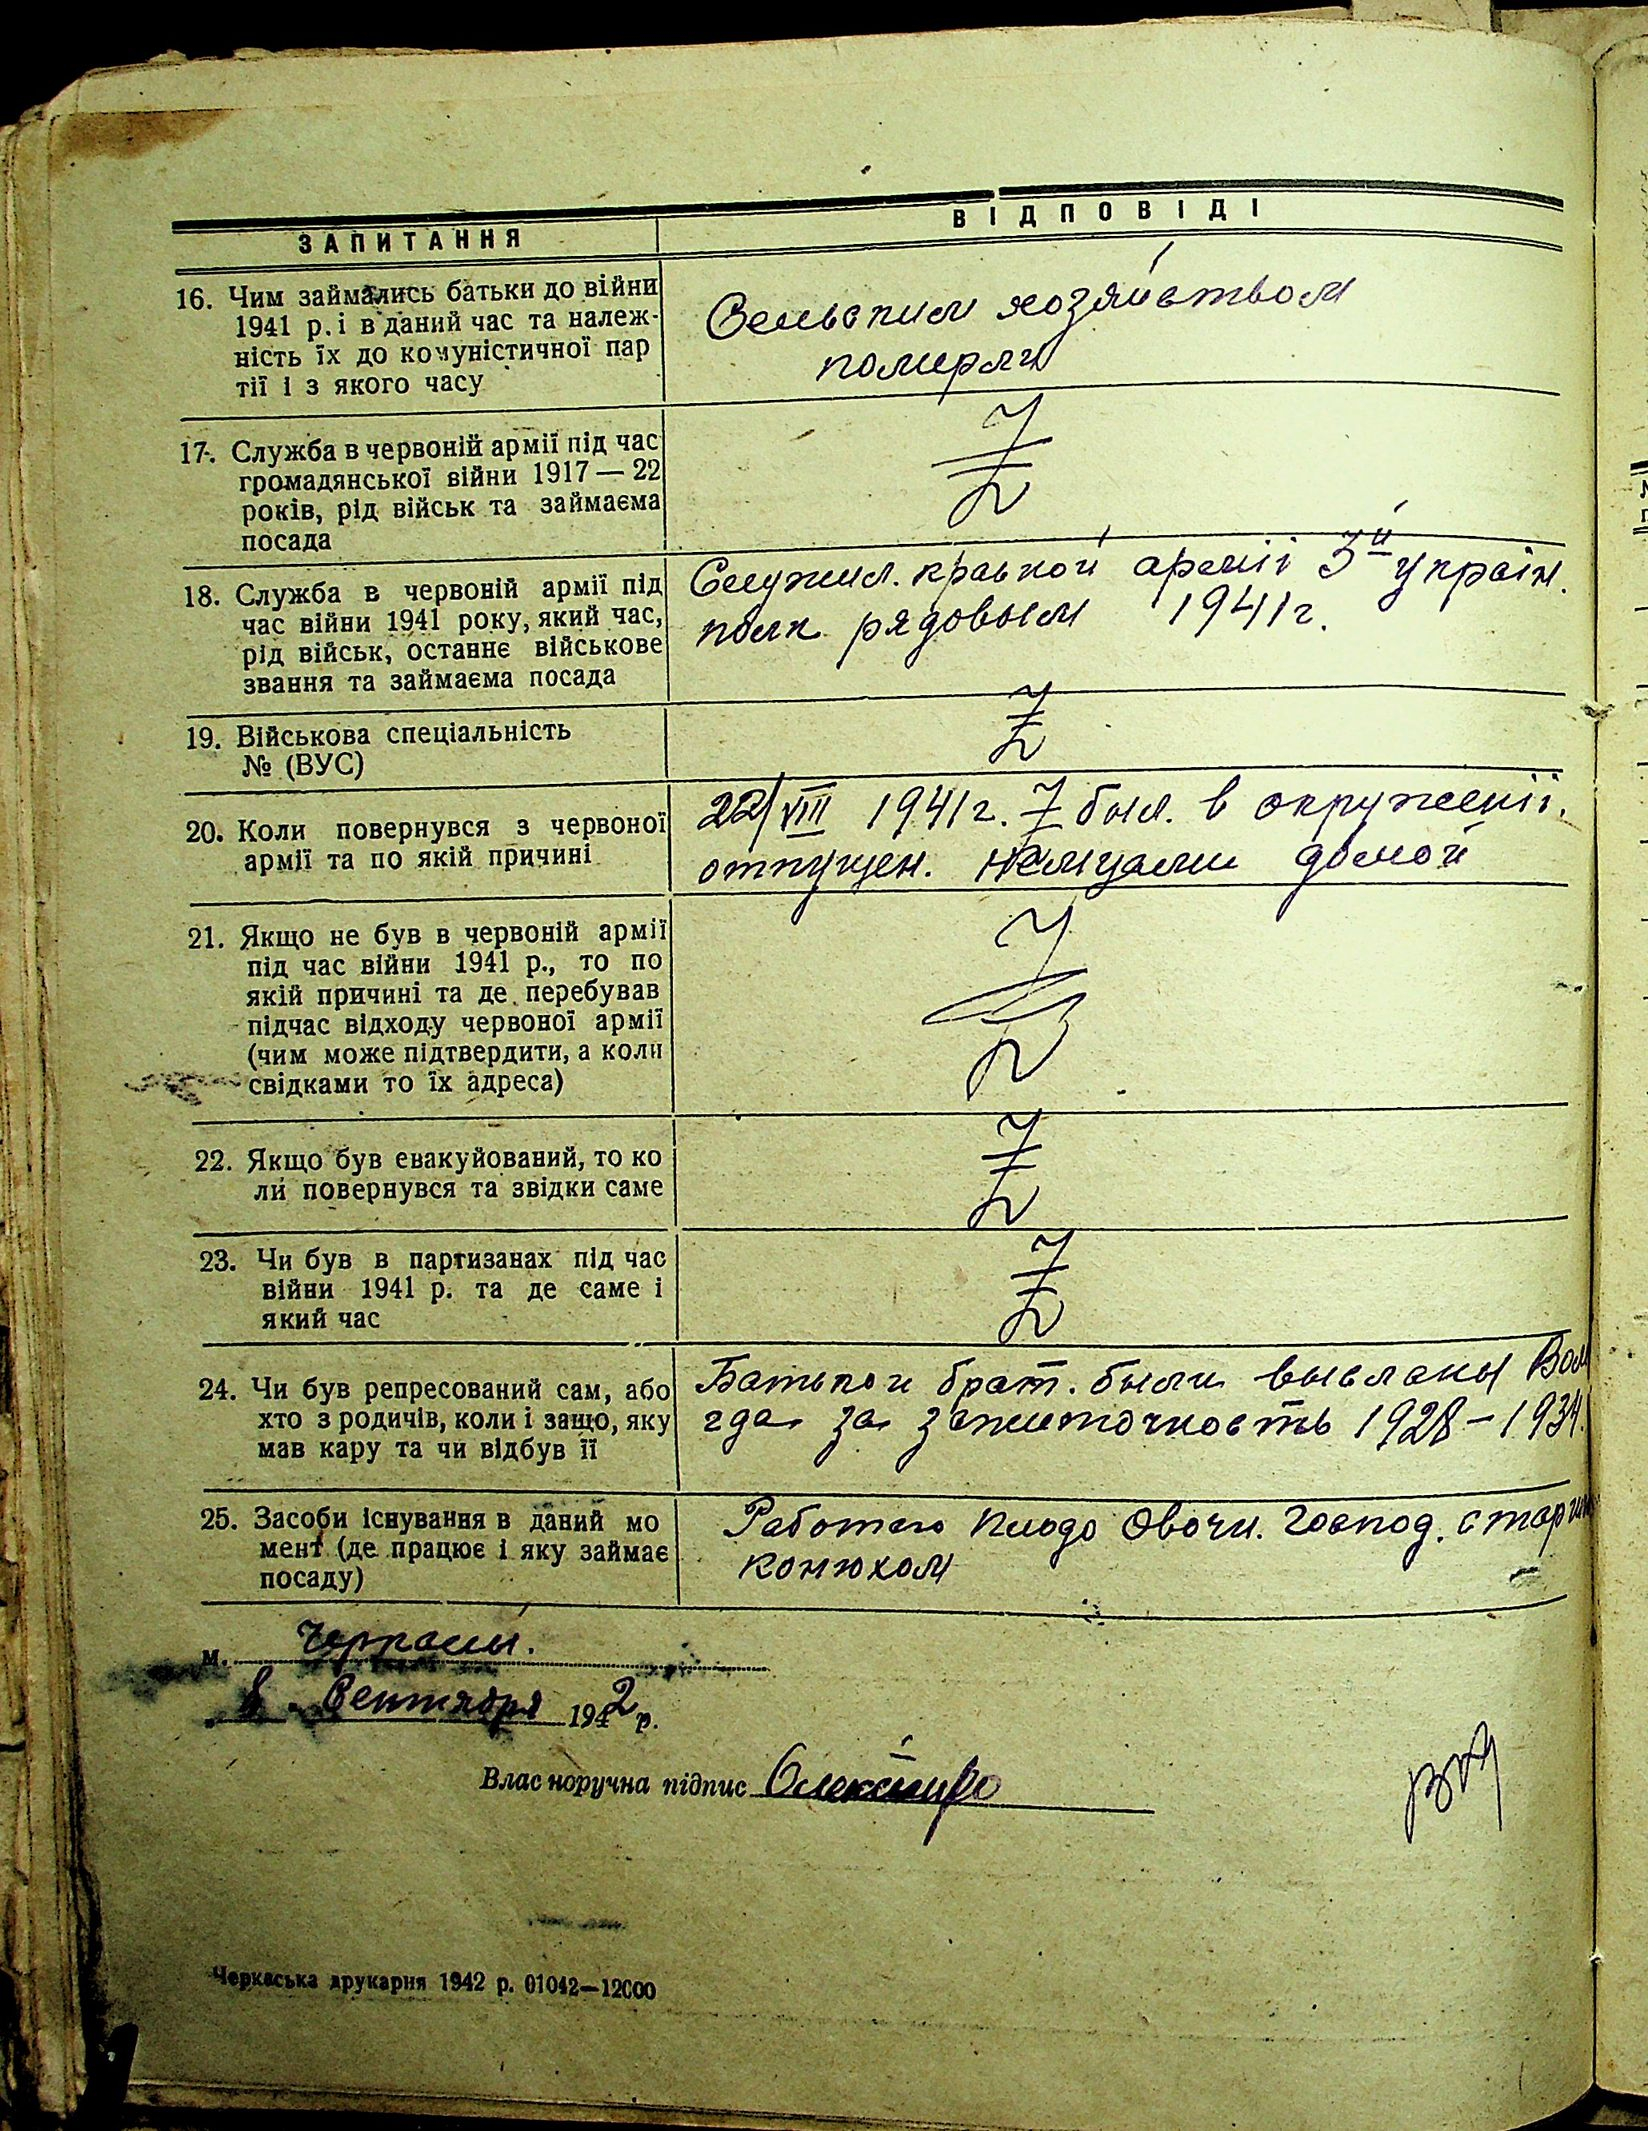 ЗАПИТАННЯ
ВІДПОВІДІ
16. Чим займались батьки до війни
1941 р. і в даний час та належ-
ність їх до комуністичної пар
тії і з якого часу
Сельским хозяйством
померли
17. Служба в червоній армії під час
громадянської війни 1917 — 22
років, рід військ та займаєма
посада
18. Служба в червоній армії під
час війни 1941 року, який час,
рід військ, останнє військове
звання та займаєма посада
Служил. красной армії 3й україн.
полк рядовым 1941 г.
19. Військова спеціальність
№ (ВУС)
20. Коли повернувся з червоної
армії та по якій причині
22/VIII 1941 г. был. в окружениі.
отпущен. немцами домой
21. Якщо не був в червоній армії
під час війни 1941 р., то по
якій причині та де перебував
підчас відходу червоної армії
(чим може підтвердити, а коли
свідками то їх адреса)
22. Якщо був евакуйований, то ко
ли повернувся та звідки саме
23. Чи був в партизанах під час
війни 1941 р. та де саме і
який час
24. Чи був репресований сам, або
хто з родичів, коли і защо, яку
мав кару та чи відбув її
Батько и брат. были высланы Вол
гда за зажиточность 1928 – 1934.
25. Засоби існування в даний мо
мент (де працює і яку займає
посаду)
Работаю плодо Овочн. Господ.
конюхом
м. Черкассы.
8. Сентября 1942 р.
Власноручна підпис
Черкаська друкарня 1942 р. 01042—12000